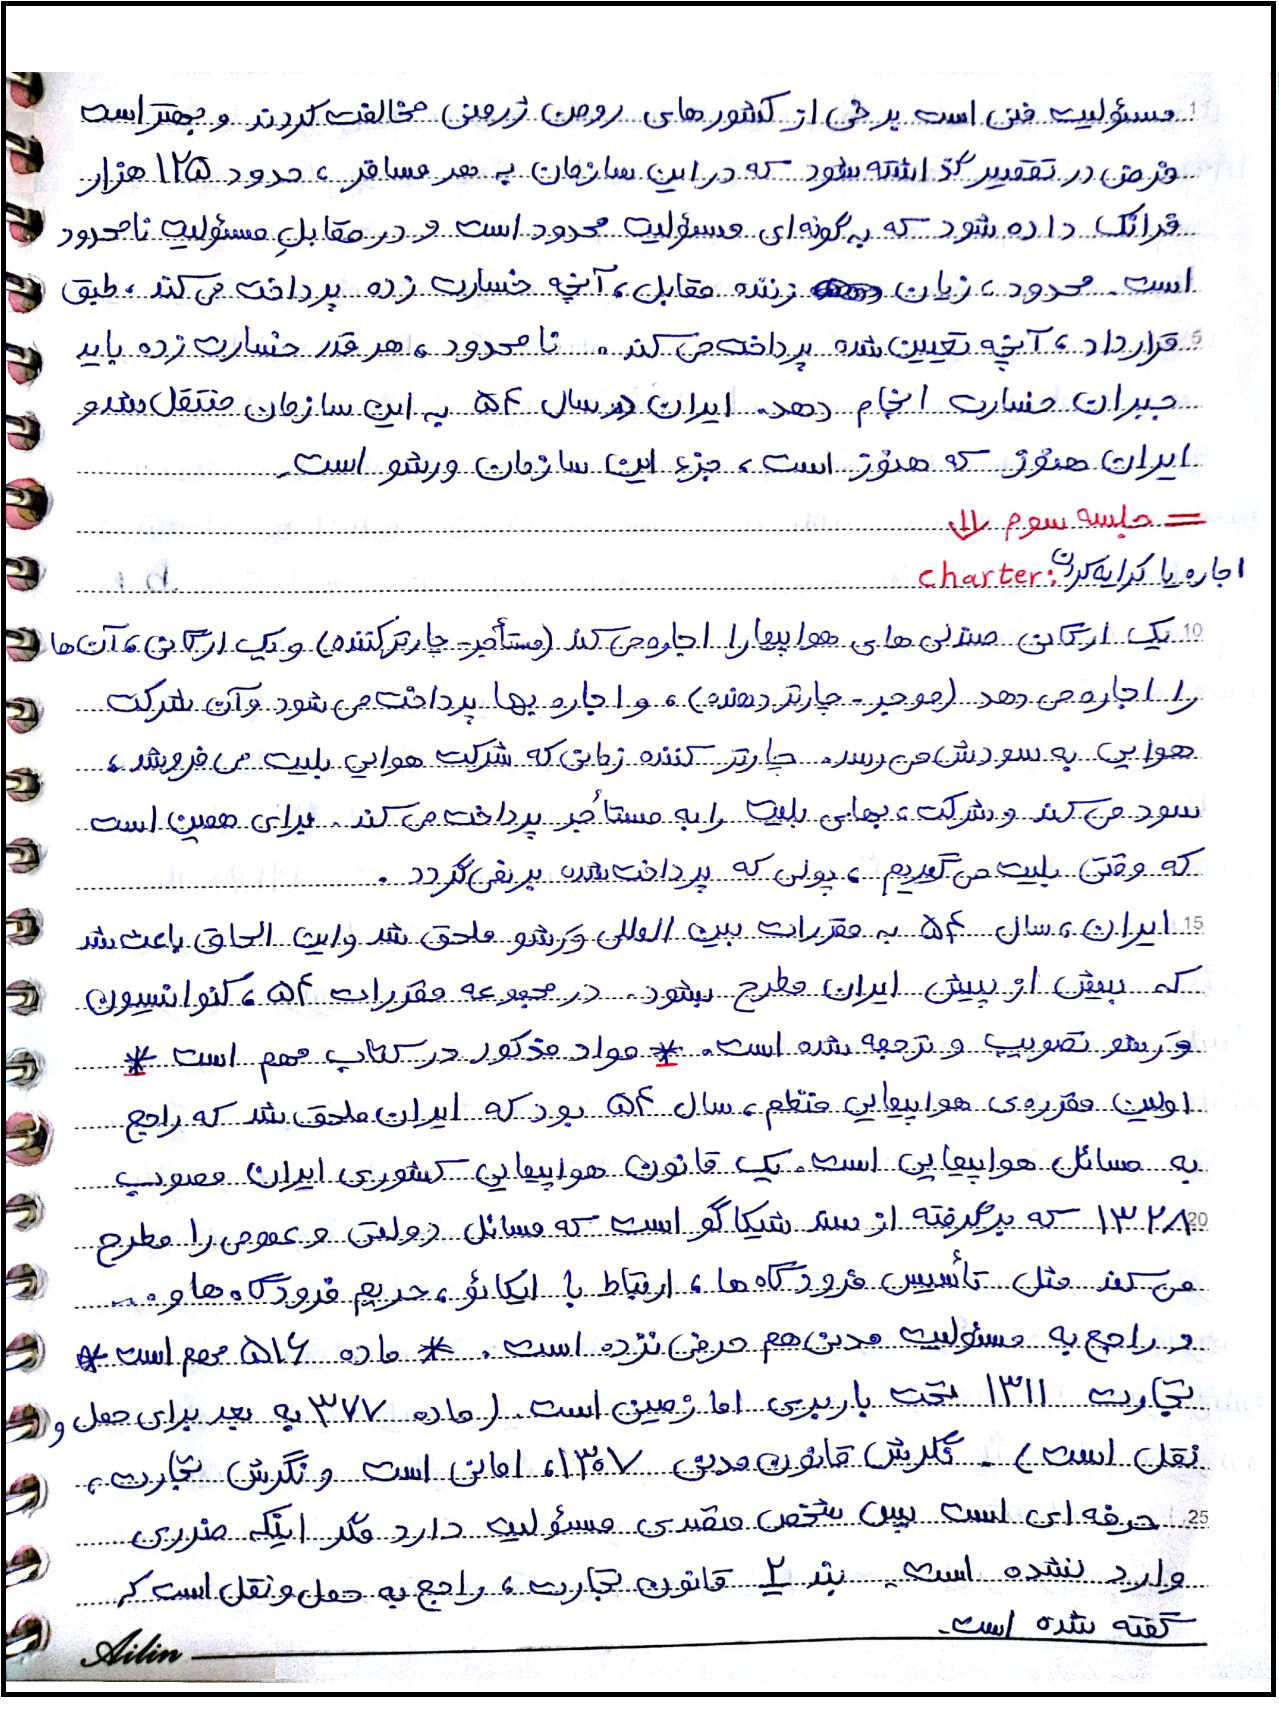 مسئولیت فنی است برخی از کشورهای رومن ژرمنی مخالفت کردند و بهتر است
فرض در تقصیر گذاشته شود که در این سازمان به هر مسافر ، حدود ۱۲۵ هزار
فرانک داده شود که به گونه‌ای مسئولیت محدود است و در مقابلِ مسئولیت نامحدود
است. محدود ، زیان زننده مقابل ، آنچه خسارت زده پرداخت می‌کند ، طبق
قرارداد ، آنچه تعیین شده پرداخت می‌کند . نامحدود ، هر قدر خسارت زده باید
جبران خسارت انجام دهد. ایران در سال ۵۴ به این سازمان منتقل شد و
ایران هنوز که هنوز است ، جزء این سازمان ورشو است.
= جلسه سوم ⇓
اجاره یا کرایه کردن charter:
یک ارگانی صندلی‌های هواپیما را اجاره می‌کند (مستأجر - چارتر کننده) و یک ارگانی ، آن‌ها
را اجاره می‌دهد (موجر - چارتر دهنده) ، و اجاره بها پرداخت می‌شود و آن شرکت
هوایی به سودش می‌رسد. چارتر کننده زمانی که شرکت هوایی بلیت می‌فروشد ،
سود می‌کند و شرکت ، بهایی بلیت را به مستأجر پرداخت می‌کند . برای همین است
که وقتی بلیت می‌گیریم ، پولی که پرداخت شده بر نمی‌گردد .
ایران ، سال ۵۴ به مقررات بین المللی ورشو ملحق شد و این الحاق باعث شد
که بیش از پیش ایران مطرح بشود. در مجموعه مقررات ۵۴ ، کنوانسیون
ورشو تصویب و ترجمه شده است. * مواد مذکور در کتاب مهم است *
اولین مقرره‌ی هواپیمایی منظم ، سال ۵۴ بود که ایران ملحق شد که راجع
به مسائل هواپیمایی است. یک قانون هواپیمایی کشوری ایران مصوب
۱۳۲۸ که برگرفته از سند شیکاگو است که مسائل دولتی و عمومی را مطرح
می‌کند مثل تأسیس فرودگاه‌ها ، ارتباط با ایکائو ، حریم فرودگاه‌ها و ...
و راجع به مسئولیت مدنی هم حرفی نزده است . * ماده ۵۱۶ مهم است *
تجارت ۱۳۱۱ تحت باربری اما زمینی است. (ماده ۳۷۷ به بعد برای حمل و
نقل است) . نگرش قانون مدنی ۱۳۰۷ ، امانی است و نگرش تجارت ،
حرفه‌ای است پس شخص متصدی مسئولیت دارد مگر اینکه ضرری
وارد نشده است. بند ۲ قانون تجارت ، راجع به حمل و نقل است که
گفته شده است.
Ailin